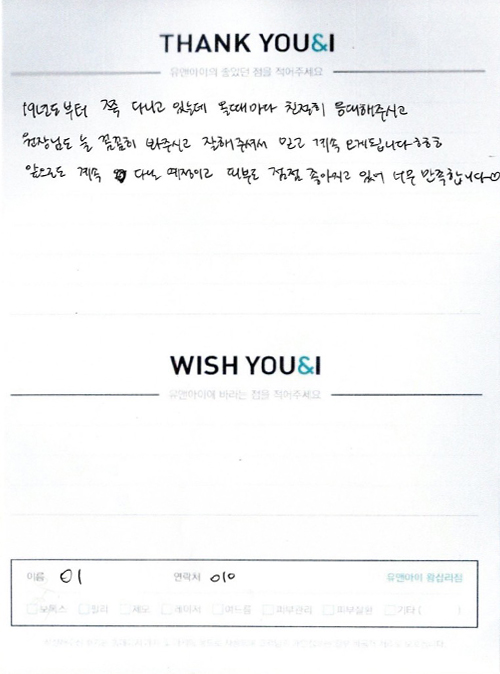 THANK YOU&I
유앤아이의 좋았던 점을 적어주세요
19년도부터 쭉 다니고 있는데 올때마다 친절히 응대해주시고
원장님도 늘 꼼꼼히 봐주시고 잘해주셔서 믿고 계속 오게됩니다ㅎㅎㅎ
앞으로도 계속 다닐 예정이고 피부도 점점 좋아지고 있어 너무 만족합니다♡
WISH YOU&I
유앤아이에 바라는 점을 적어주세요
이름 이 연락처 010 유앤아이 왕십리점
보톡스 필러 제모 레이저 여드름 피부관리 피부질환 기타 ( )